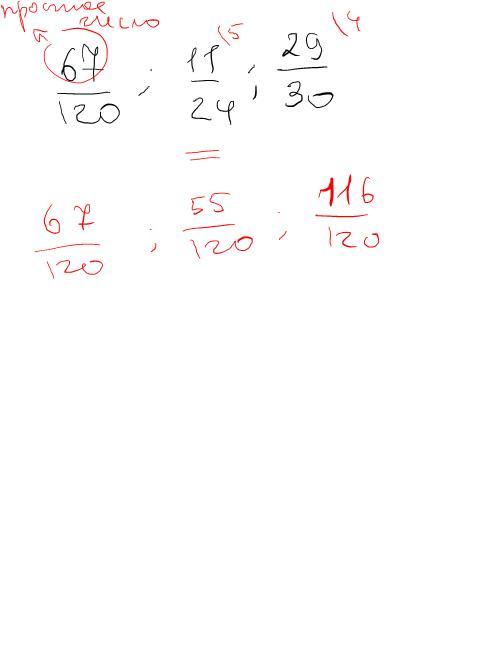 простое
число
67/120 ; 11/24 \5 ; 29/30 \4
=
67/120 ; 55/120 ; 116/120